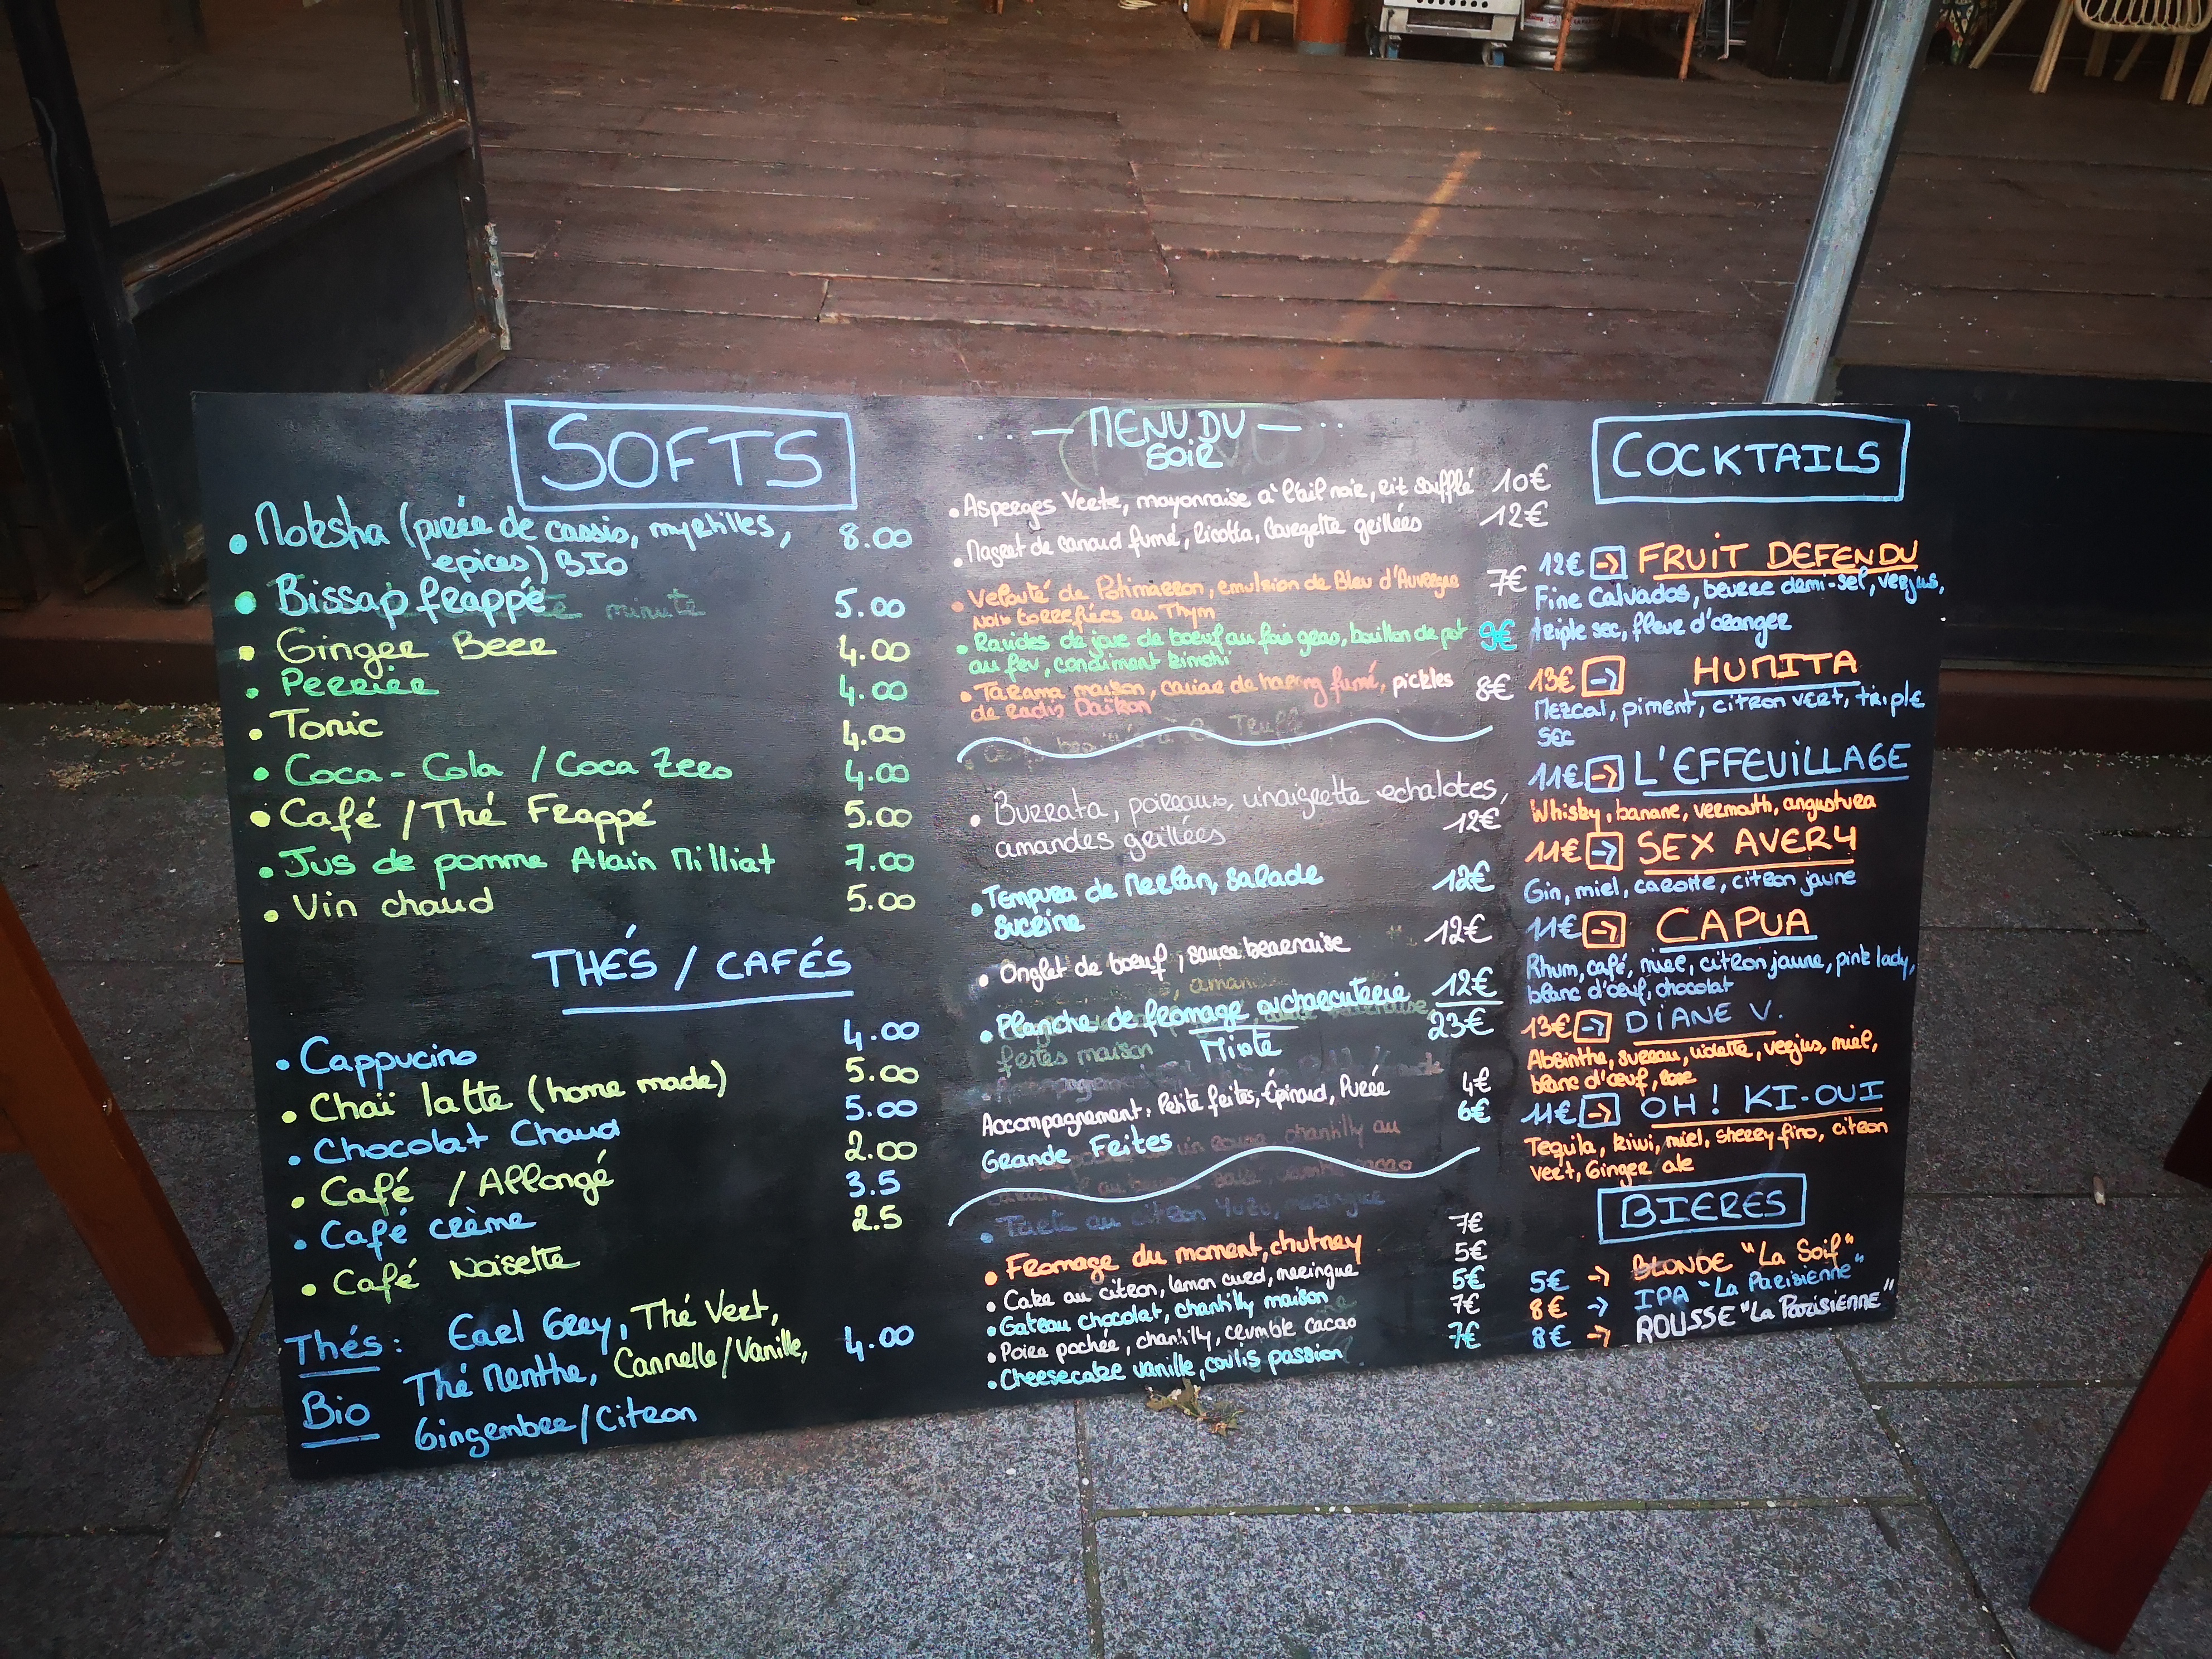 SOFTS
• Moksha (purée de cassis, myrtilles, 8.00
épices) BIO
• Bissap frappé 5.00
minute
• Ginger Beer 4.00
• Perrier 4.00
• Tonic 4.00
• Coca-Cola / Coca Zero 4.00
• Café / Thé Frappé 5.00
• Jus de pomme Alain Milliat 7.00
• Vin chaud 5.00
THÉS / CAFÉS
• Cappucino 4.00
• Chaï latte (home made) 5.00
• Chocolat Chaud 5.00
• Café / Allongé 2.00
• Café crème 3.5
• Café Noisette 2.5
Thés : Earl Grey, Thé Vert,
Bio Thé Menthe, Cannelle/Vanille, 4.00
Gingembre/Citron
— MENU DU —
SOIR
• Asperges Verte, mayonnaise à l'ail noir, riz soufflé 10€
• Magret de canard fumé, Ricotta, Courgette grillées 12€
• Velouté de Potimarron, emulsion de Bleu d'Auvergne 7€
Noix torrefiées au Thym
• Ravioles de joue de boeuf au foie gras, bouillon de pot 9€
au feu, condiment kimchi
• Tarama maison, caviar de hareng fumé, pickles 8€
de radis Daïkon
• Burrata, poireaux, vinaigrette echalotes,
amandes grillées 12€
• Tempura de Merlan, salade 12€
Sucrine
• Onglet de boeuf, sauce bearnaise 12€
• Planche de fromage ou charcuterie 12€
Mixte 23€
feites maison
Accompagnement: Petite frites, Épinard, Purée 4€
Grande Frites 6€
• Tarte au citron Yuzu, meringue
• Fromage du moment, chutney 7€
• Cake au citron, lemon curd, meringue 5€
• Gateau chocolat, chantilly maison 5€
• Poire pochée, chantilly, crumble cacao 7€
• Cheesecake vanille, coulis passion 7€
COCKTAILS
12€ → FRUIT DEFENDU
Fine Calvados, beurre demi-sel, verjus,
triple sec, fleur d'oranger
13€ → HUMITA
Mezcal, piment, citron vert, triple
sec
11€ → L'EFFEUILLAGE
Whisky, banane, vermouth, angustura
11€ → SEX AVERY
Gin, miel, carotte, citron jaune
11€ → CAPUA
Rhum, café, miel, citron jaune, pink lady,
blanc d'œuf, chocolat
13€ → DIANE V.
Absinthe, sureau, violette, verjus, miel,
blanc d'œuf, rose
11€ → OH! KI-OUI
Tequila, kiwi, miel, sherry fino, citron
vert, Ginger ale
BIERES
5€ → BLONDE "La Soif"
8€ → IPA "La Parisienne"
8€ → ROUSSE "La Parisienne"